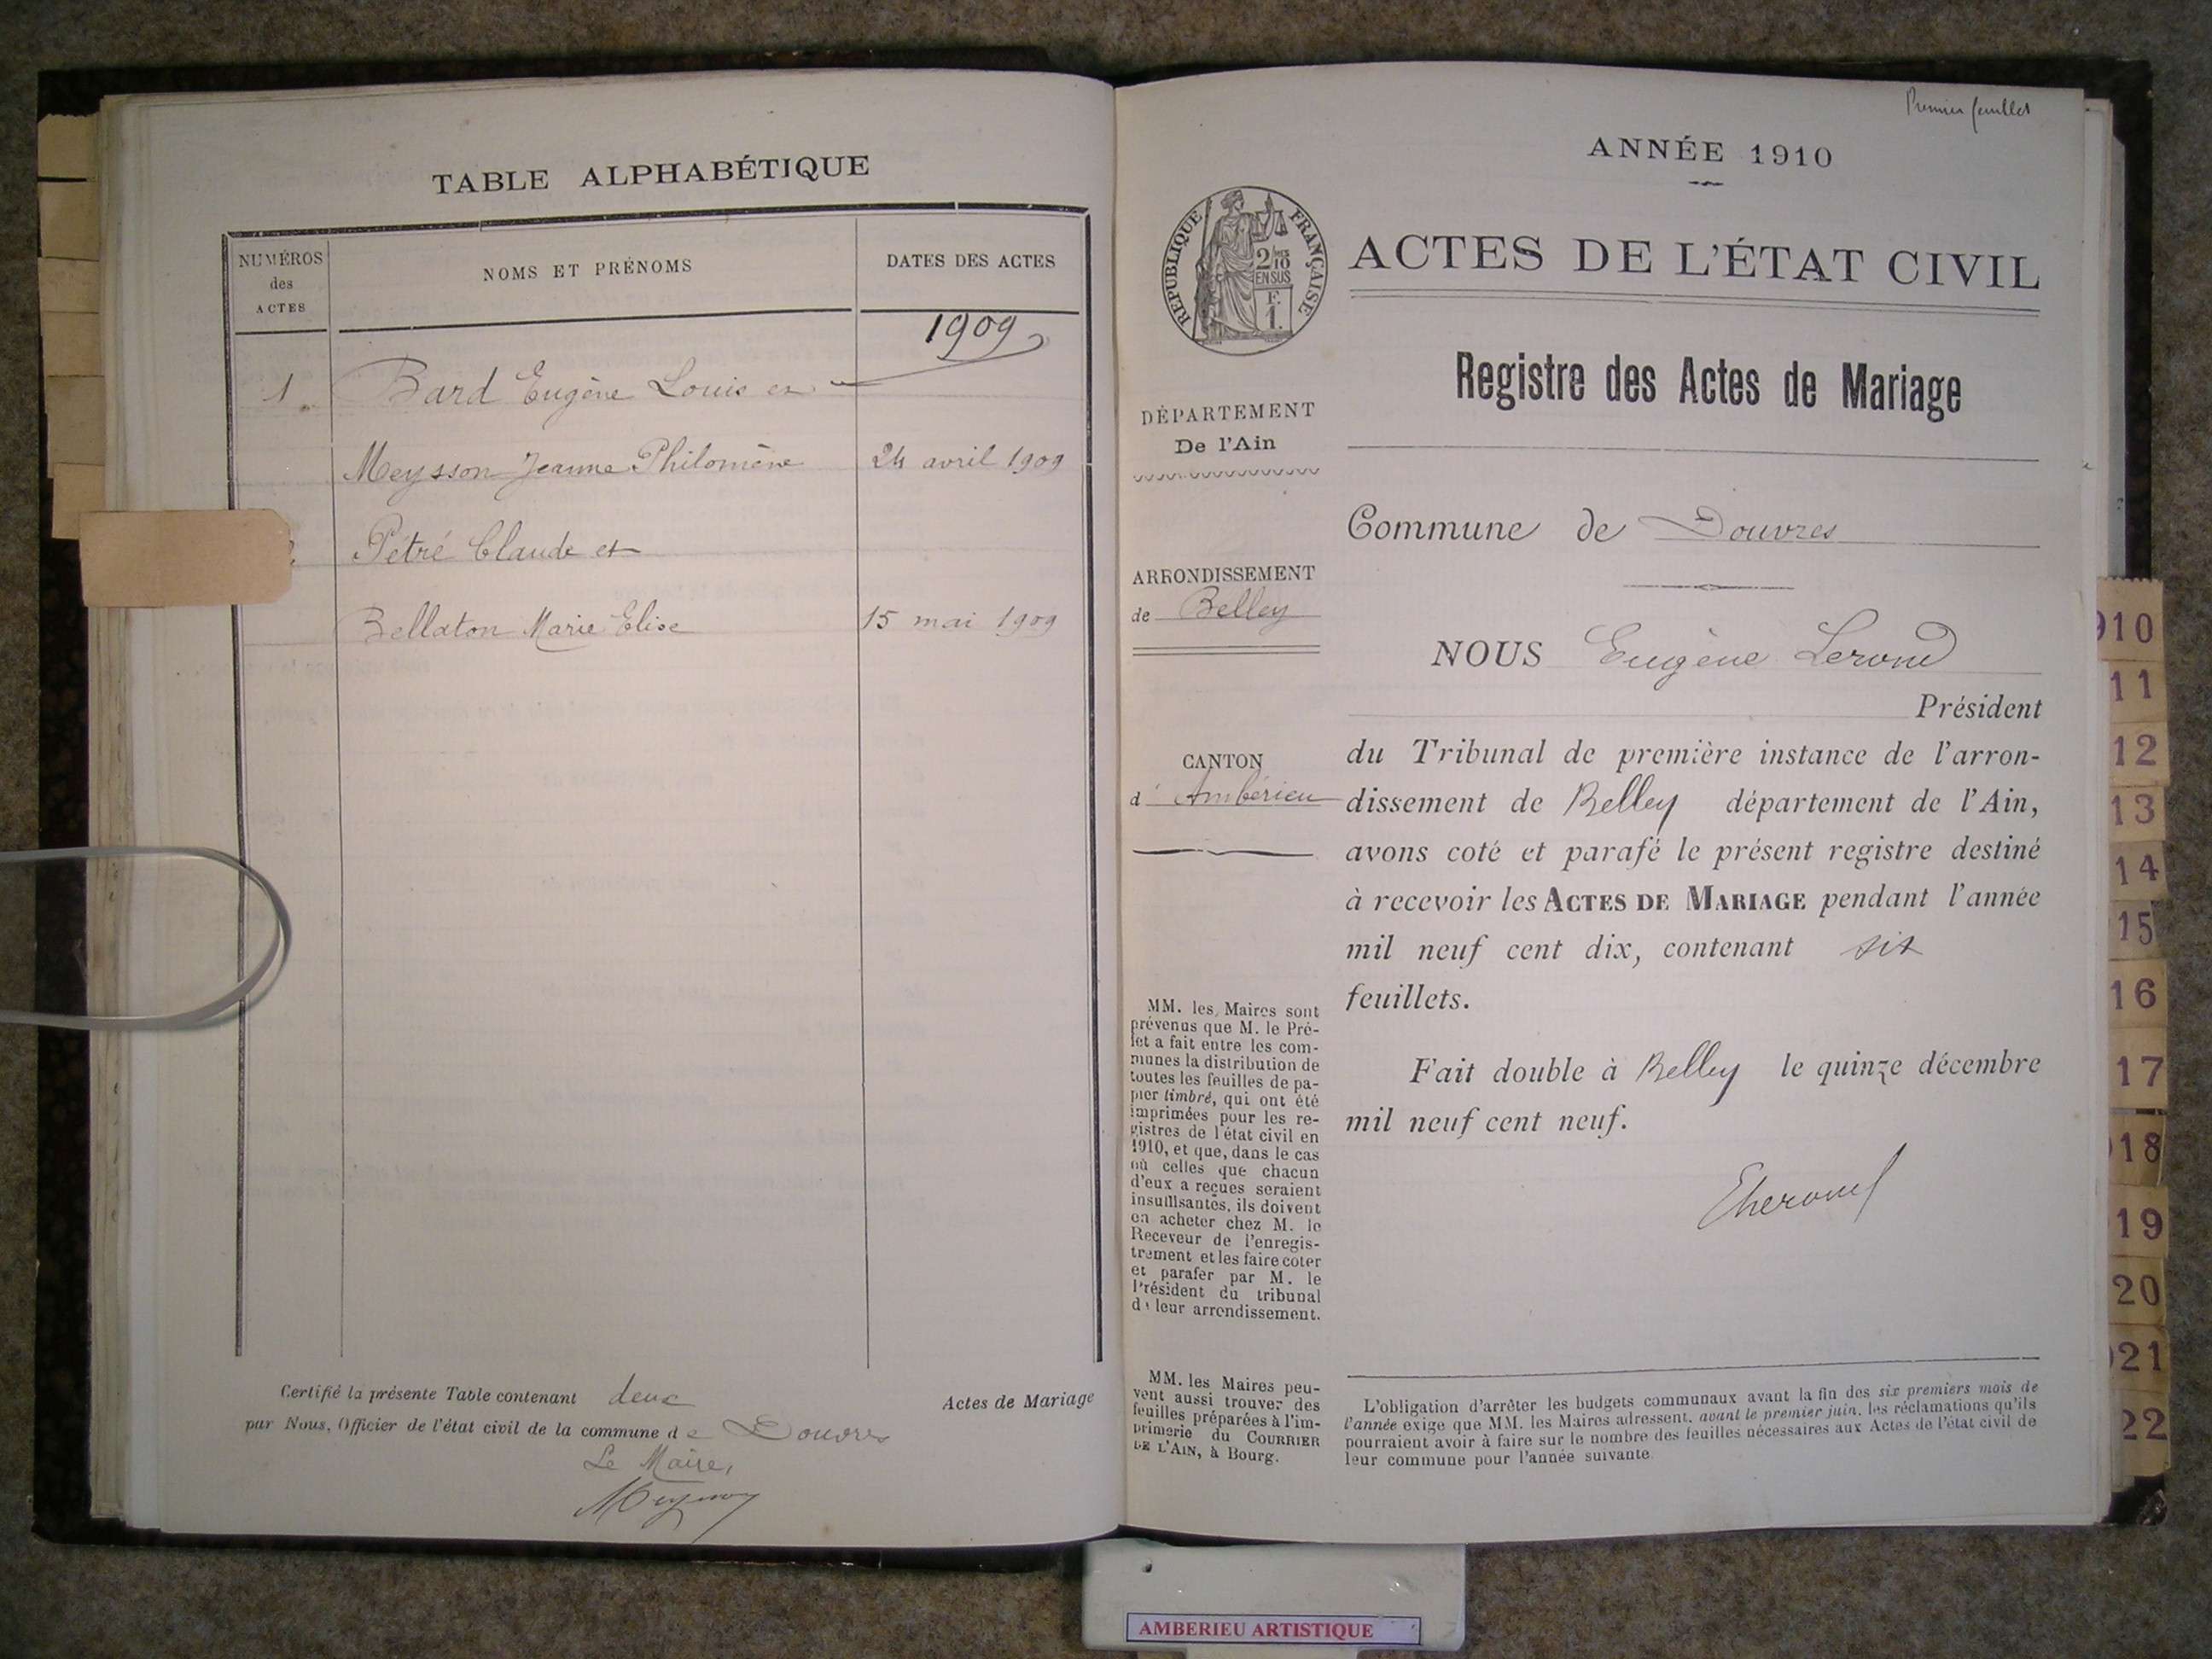 TABLE ALPHABÉTIQUE
NUMÉROS
des
ACTES
NOMS ET PRÉNOMS
DATES DES ACTES
1909
1 Bard Eugène Louis et
Meysson Jeanne Philomène 24 avril 1909
Pétré Claude et
Bellaton Marie Elise 15 mai 1909
Certifié la présente Table contenant deux Actes de Mariage
par Nous, Officier de l'état civil de la commune de Douvres
Le Maire,
Premier feuillet
ANNÉE 1910
RÉPUBLIQUE FRANÇAISE
2/10
EN SUS
F.
1.
ACTES DE L'ÉTAT CIVIL
Registre des Actes de Mariage
DÉPARTEMENT
De l'Ain
ARRONDISSEMENT
de Belley
CANTON
d'Ambérieu
MM. les Maires sont
prévenus que M. le Pré-
fet a fait entre les com-
munes la distribution de
toutes les feuilles de pa-
pier timbré, qui ont été
imprimées pour les re-
gistres de l'état civil en
1910, et que, dans le cas
où celles que chacun
d'eux a reçues seraient
insuffisantes, ils doivent
en acheter chez M. le
Receveur de l'enregis-
trement et les faire coter
et parafer par M. le
Président du tribunal
de leur arrondissement.
MM. les Maires peu-
vent aussi trouver des
feuilles préparées à l'im-
primerie du COURRIER
DE L'AIN, à Bourg.
Commune de Douvres
NOUS Eugène Lerond
Président
du Tribunal de première instance de l'arron-
dissement de Belley département de l'Ain,
avons coté et parafé le présent registre destiné
à recevoir les ACTES DE MARIAGE pendant l'année
mil neuf cent dix, contenant six
feuillets.
Fait double à Belley le quinze décembre
mil neuf cent neuf.
L'obligation d'arrêter les budgets communaux avant la fin des six premiers mois de
l'année exige que MM. les Maires adressent, avant le premier juin, les réclamations qu'ils
pourraient avoir à faire sur le nombre des feuilles nécessaires aux Actes de l'état civil de
leur commune pour l'année suivante.
910
11
12
13
14
15
16
17
18
19
20
21
22
AMBERIEU ARTISTIQUE